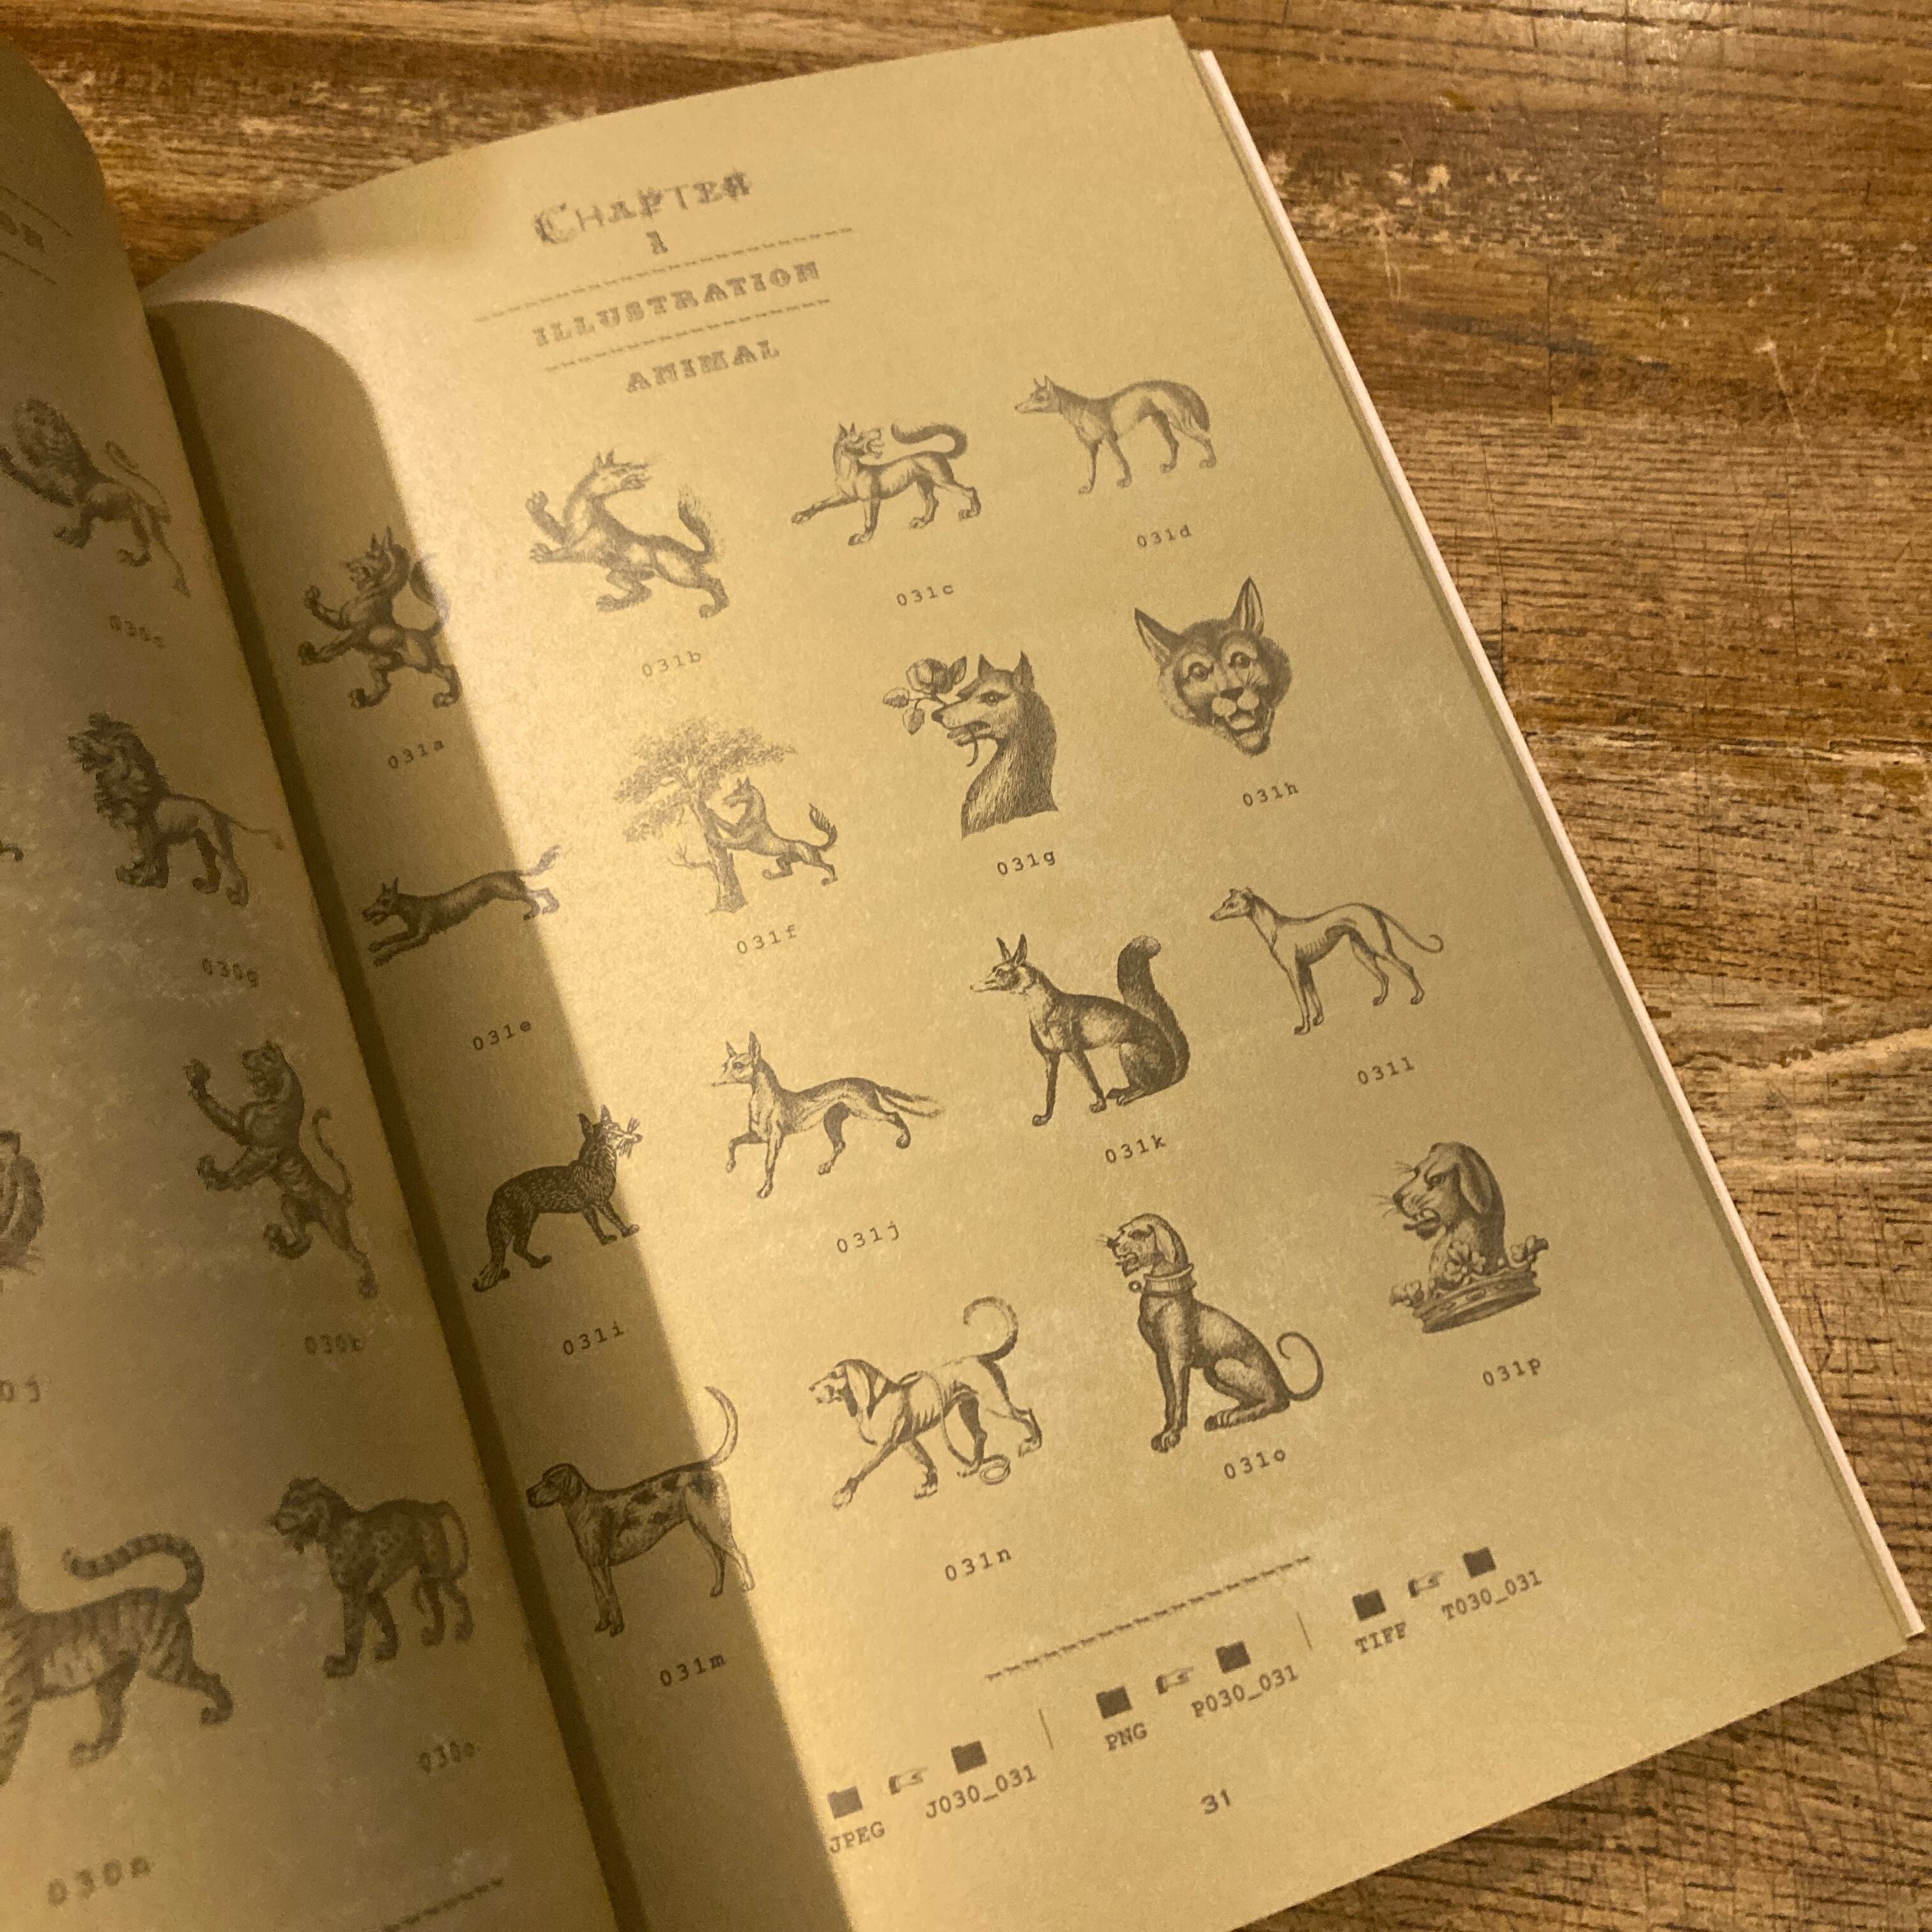 030g
030k
0j
030o
030n
CHAPTER
1
ILLUSTRATION
ANIMAL
031a
031b
031c
031d
031e
031f
031g
031h
031i
031j
031k
031l
031m
031n
031o
031p
JPEG J030_031
PNG P030_031
TIFF T030_031
31